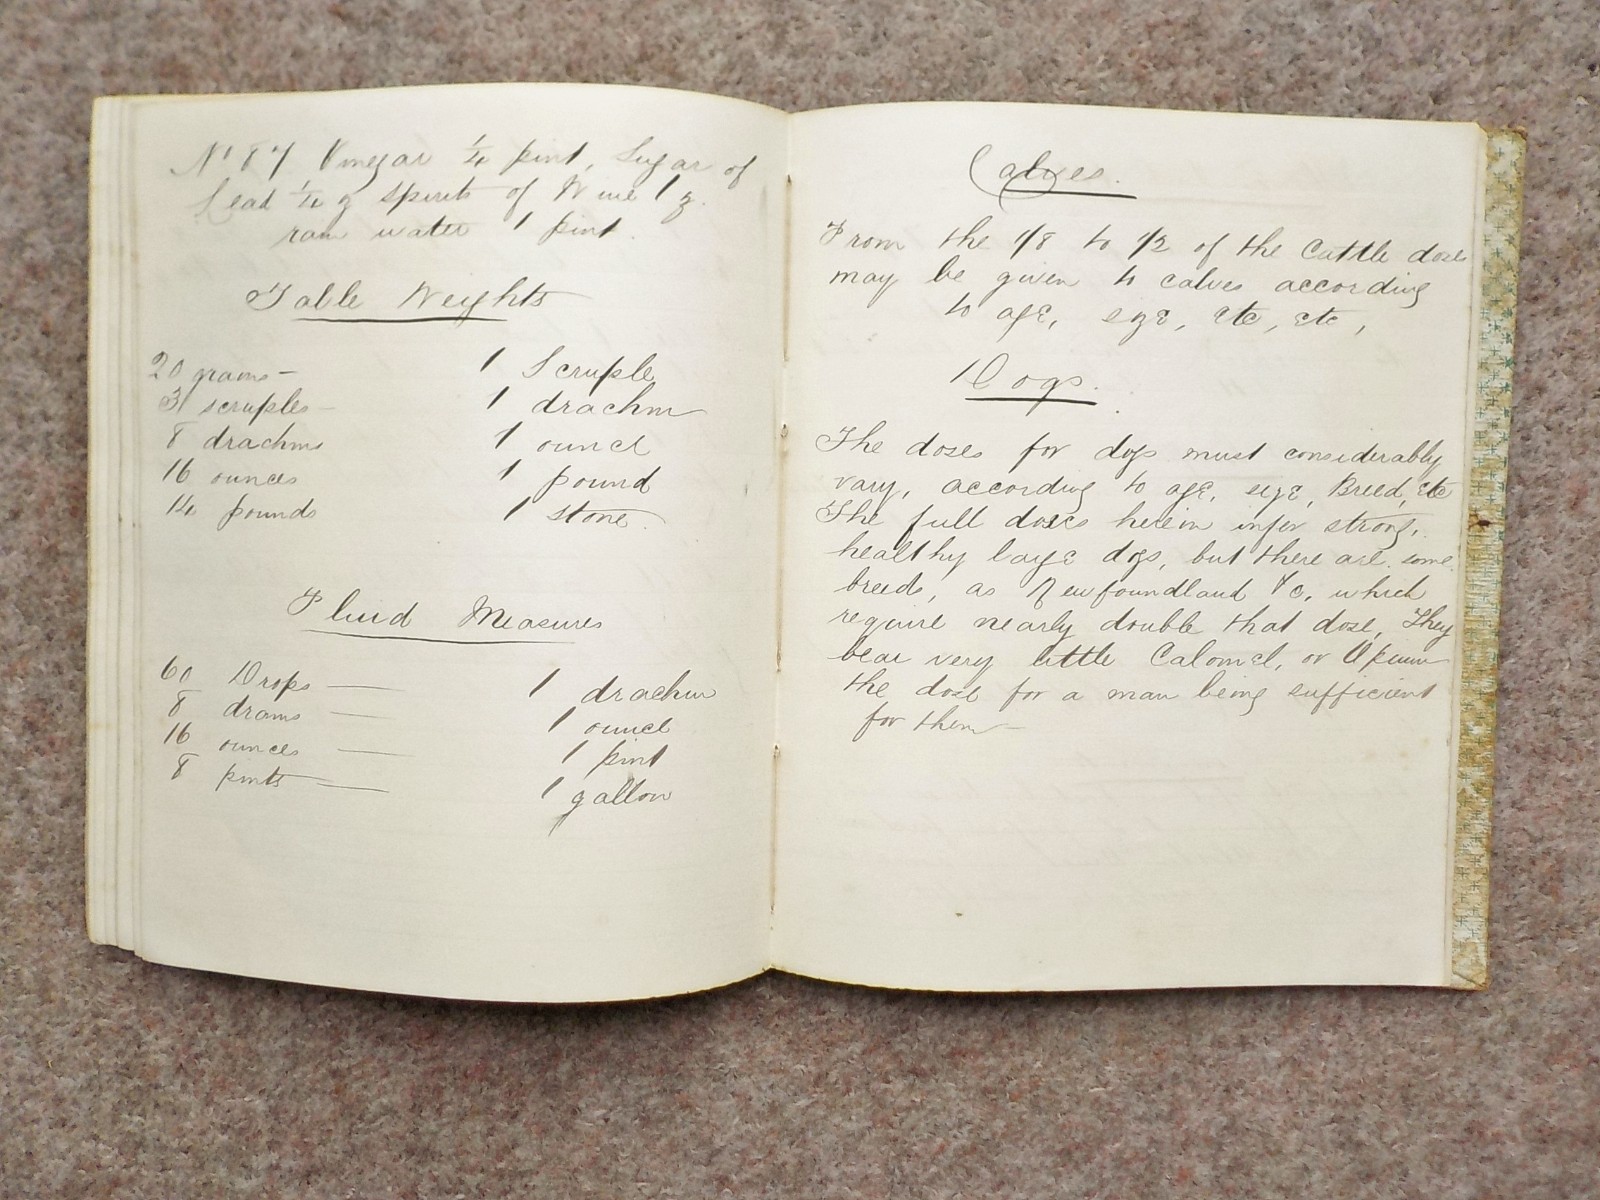 No 87 Vinegar 1/4 pint, Sugar of
Lead 1/4 ℥ spirits of Wine 1 ℥.
rain water 1 pint.
Table Weights
20 grains — 1 Scruple
3 scruples — 1 drachm
8 drachms 1 ounce
16 ounces 1 pound
14 pounds 1 stone.
Fluid Measures
60 Drops — 1 drachm
8 drams — 1 ounce
16 ounces — 1 pint
8 pints — 1 gallon
Calves.
From the 1/8 to 1/2 of the Cattle dose
may be given to calves according
to age, size, etc, etc,
Dogs.
The doses for dogs must considerably
vary, according to age, size, Breed, etc
The full doses herein infer strong,
healthy large dogs, but there are some
breeds, as Newfoundland &c, which
require nearly double that dose, They
bear very little Calomel, or Opium
the dose for a man being sufficient
for them —